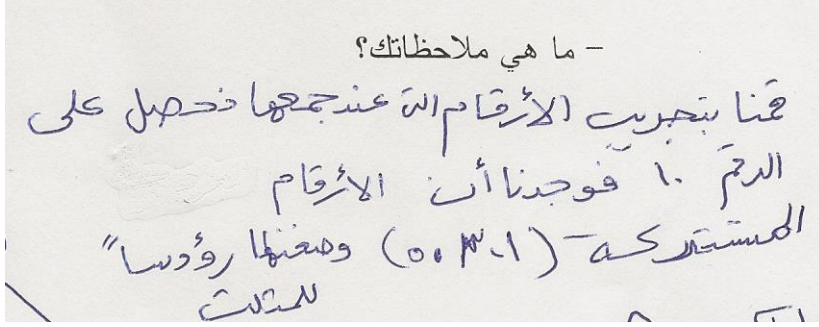 - ما هي ملاحظاتك؟
قمنا بتجريب الأرقام التي عند جمعها نحصل على
الرقم ١٠ فوجدنا أن الأرقام
المشتركة - (٥،٣،١) وضعناها رؤوساً
للمثلث